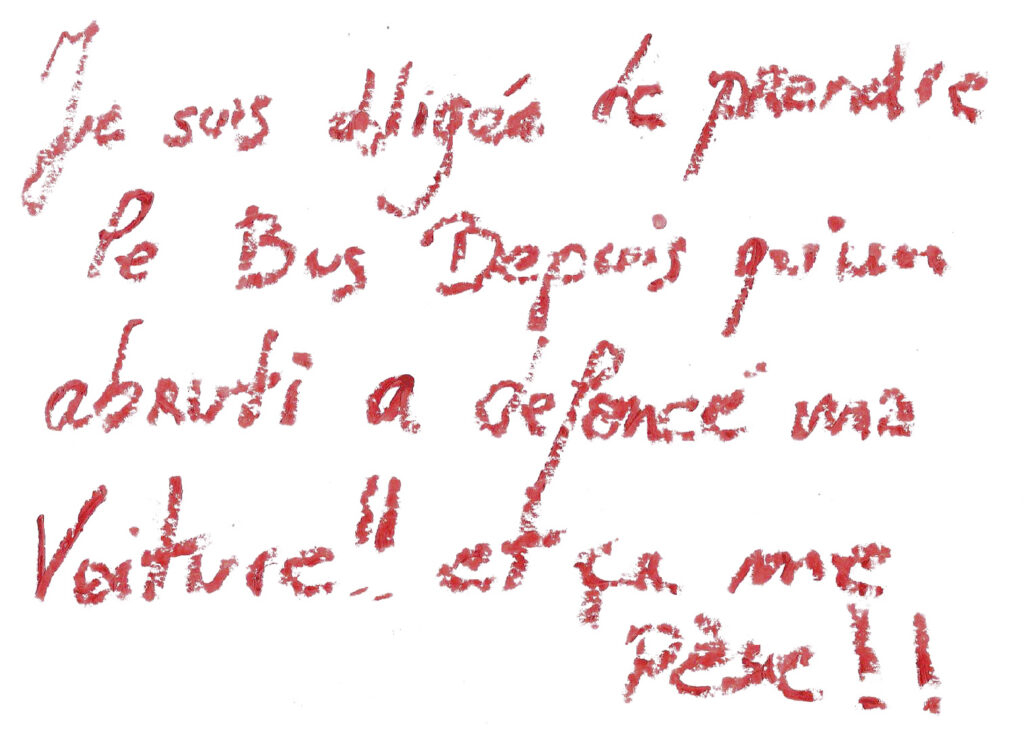 Je suis obligée de prendre
le Bus Depuis qu'un
abruti a defoncé ma
Voiture!! et ça me
Pèse!!